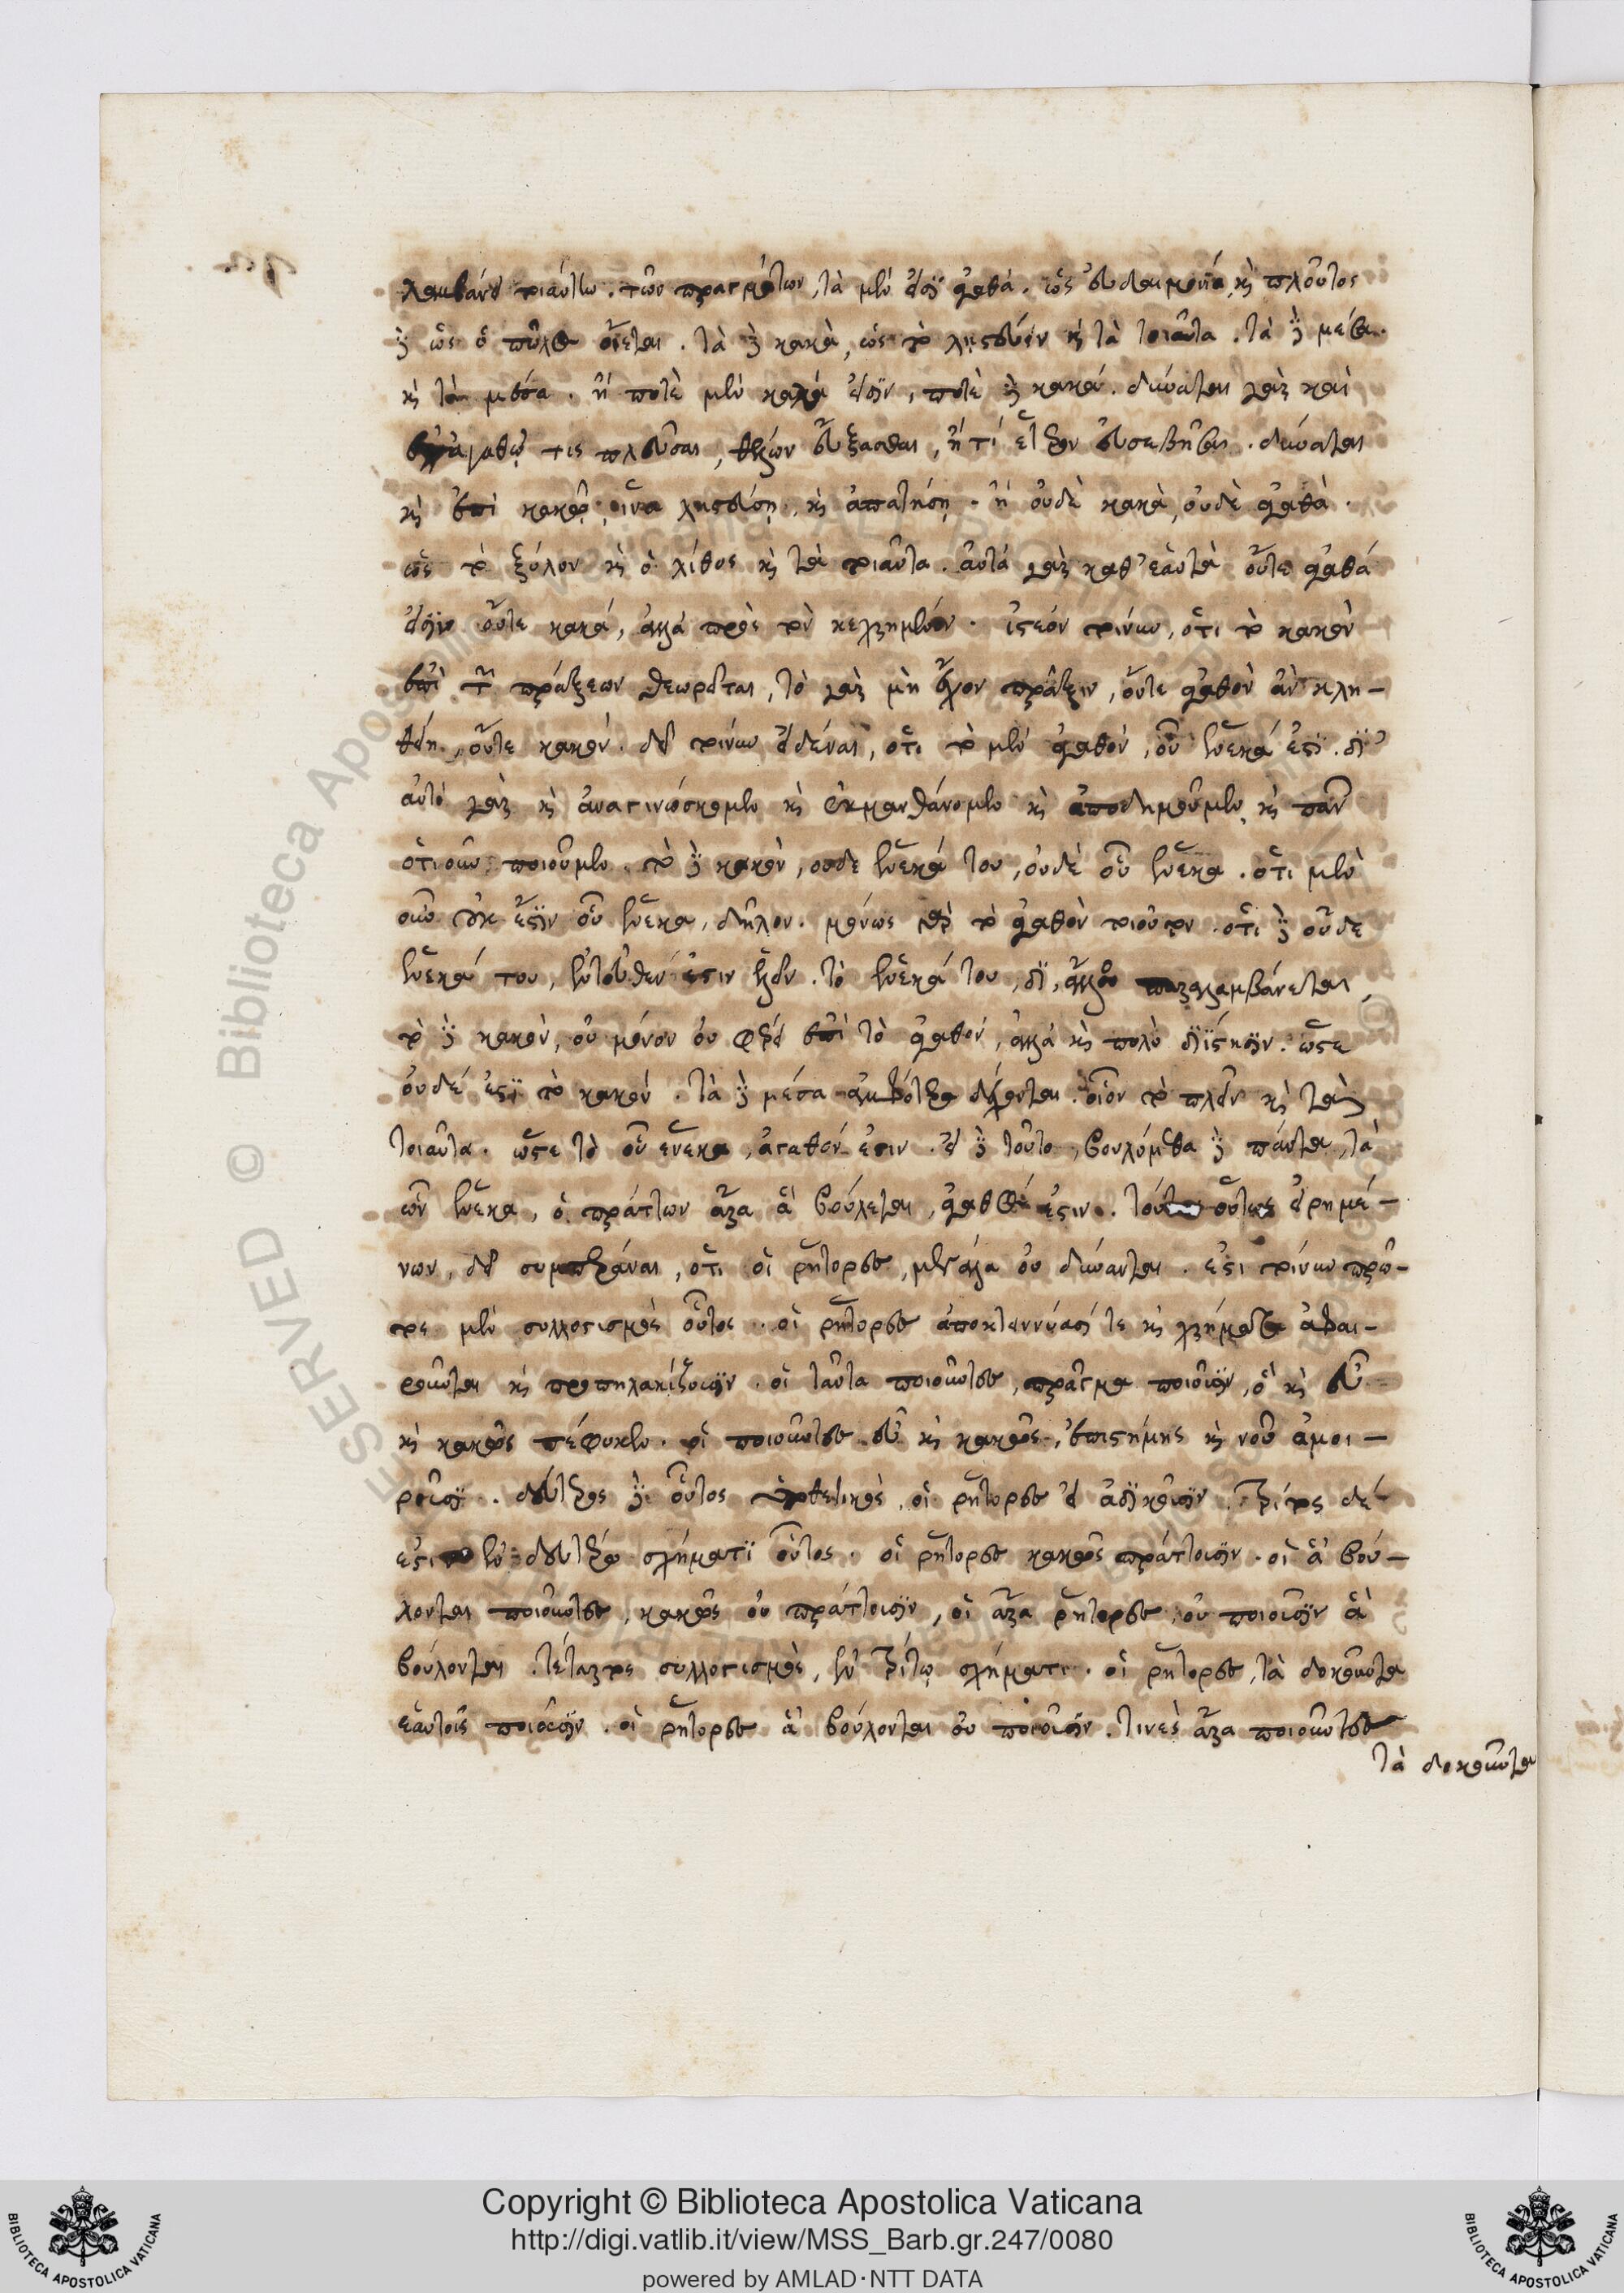 λαμβάνει τοιαύτην. τῶν πραγμάτων, τὰ μὲν εἰσὶ ἀγαθά. ὡς εὐδαιμονία, καὶ πλοῦτος
δὲ ὡς ὁ πῶλος οἴεται. τὰ δὲ κακὰ, ὡς τὸ λῃστεύειν καὶ τὰ τοιαῦτα. τὰ δὲ μέσα.
καὶ τὰ μέσα. ἢ ποτὲ μὲν καλά εἰσιν, ποτὲ δὲ κακά. δύναται γὰρ καὶ
ἐπ' ἀγαθῷ τις πλεῦσαι, θέλων εὔξασθαι, ἤ τι ἕτερον εὐσεβῆσαι. δύναται
καὶ ἐπὶ κακῷ, ἵνα λῃστεύσῃ, καὶ ἀπατήσῃ. ἢ οὐδὲ κακὰ, οὐδὲ ἀγαθὰ.
ὡς τὸ ξύλον καὶ ὁ λίθος καὶ τὰ τοιαῦτα. αὐτὰ γὰρ καθ' ἑαυτὰ οὔτε ἀγαθά
εἰσιν οὔτε κακά, ἀλλὰ πρὸς τὸν κεχρημένον. ἰστέον τοίνυν, ὅτι τὸ κακὸν
ἐπὶ τῶν πράξεων θεωρεῖται, τὸ γὰρ μὴ ἔχον πρᾶξιν, οὔτε ἀγαθὸν ἂν κλη-
θείη, οὔτε κακόν. δεῖ τοίνυν εἰδέναι, ὅτι τὸ μὲν ἀγαθόν, οὗ ἕνεκά ἐστι. δι'
αὐτὸ γὰρ καὶ ἀναγινώσκομεν καὶ ἐκμανθάνομεν καὶ ἀποδημοῦμεν, καὶ πᾶν
ὁτιοῦν ποιοῦμεν. τὸ δὲ κακὸν, οὐδε ἕνεκά του, οὐδὲ οὗ ἕνεκα. ὅτι μὲν
οὖν οὐκ ἔστιν οὗ ἕνεκα, δῆλον. μόνως γὰρ τὸ ἀγαθὸν τοιοῦτον. ὅτι δὲ οὔδε
ἕνεκά του, ἐντεῦθέν ἐστιν ἰδεῖν. τὸ ἕνεκά του, δι' ἄλλου παραλαμβάνεται,
τὸ δὲ κακὸν, οὐ μόνον οὐ φέρει ἐπὶ τὸ ἀγαθόν, ἀλλὰ καὶ πολὺ διΐστησιν. ὥστε
οὐδέ ἐστι τὸ κακόν. τὰ δὲ μέσα ἀμφότερα δέχονται. οἷον τὸ πλεῖν καὶ τὰ
τοιαῦτα. ὥστε τὸ οὗ ἕνεκα, ἀγαθόν ἐστιν. εἰ δὲ τοῦτο, βουλόμεθα δὲ πάντα, τὰ
ὧν ἕνεκα, ὁ πράττων ἄρα ἃ βούλεται, ἀγαθά ἐστιν. τούτων οὕτως εἰρημέ-
νων, δεῖ συμπερᾶναι, ὅτι οἱ ῥήτορες, μεγάλα οὐ δύνανται. ἔστι τοίνυν πρῶ-
τος μὲν συλλογισμὸς οὗτος. οἱ ῥήτορες ἀποκτεννύασί τε καὶ χρήματα ἀφαι-
ροῦνται καὶ προπηλακίζουσιν. οἱ ταῦτα ποιοῦντες, πρᾶγμα ποιοῦσιν, ὃ καὶ εὖ
καὶ κακῶς πέφυκεν. οἱ ποιοῦντες εὖ καὶ κακῶς, ἐπιστήμης καὶ νοῦ ἀμοι-
ροῦσι. δεύτερος δὲ οὗτος ὑποθετικὸς. οἱ ῥήτορες εἰ ἀδικοῦσιν. τρίτος δέ
ἐστιν ἐν δευτέρῳ σχήματι οὗτος. οἱ ῥήτορες κακῶς πράττουσιν. οἱ ἃ βού-
λονται ποιοῦντες, κακῶς οὐ πράττουσιν, οἱ ἄρα ῥήτορες, οὐ ποιοῦσιν ἃ
βούλονται. τέταρτος συλλογισμὸς, ἐν τρίτῳ σχήματι. οἱ ῥήτορες, τὰ δοκοῦντα
ἑαυτοῖς ποιοῦσιν. οἱ ῥήτορες ἃ βούλονται οὐ ποιοῦσιν. τινὲς ἄρα ποιοῦντες
τὰ δοκοῦντα
RESERVED © Biblioteca Apostolica Vaticana
Copyright © Biblioteca Apostolica Vaticana
http://digi.vatlib.it/view/MSS_Barb.gr.247/0080
powered by AMLAD·NTT DATA
BIBLIOTECA APOSTOLICA VATICANA
BIBLIOTECA APOSTOLICA VATICANA